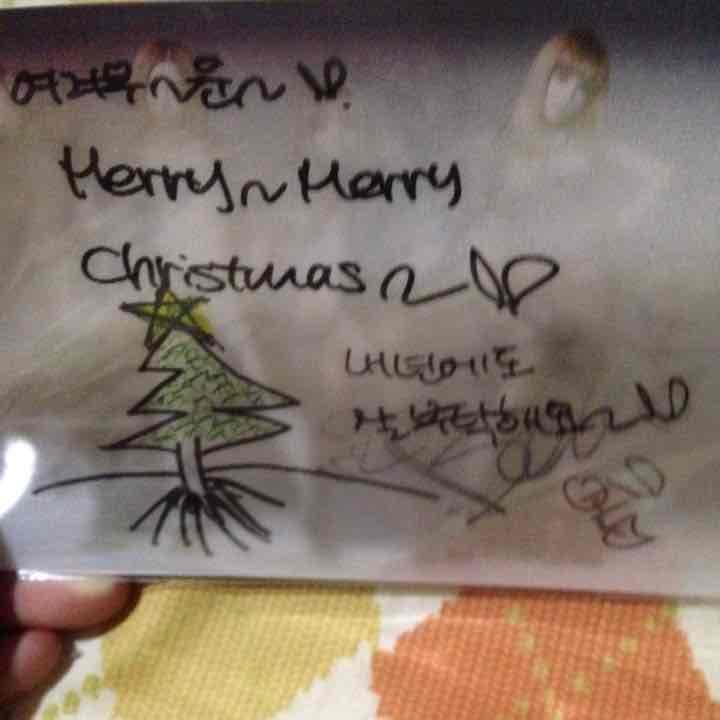 여격목~윤~
Merry~Merry
Christmas~
내년에도
잘부탁해요~